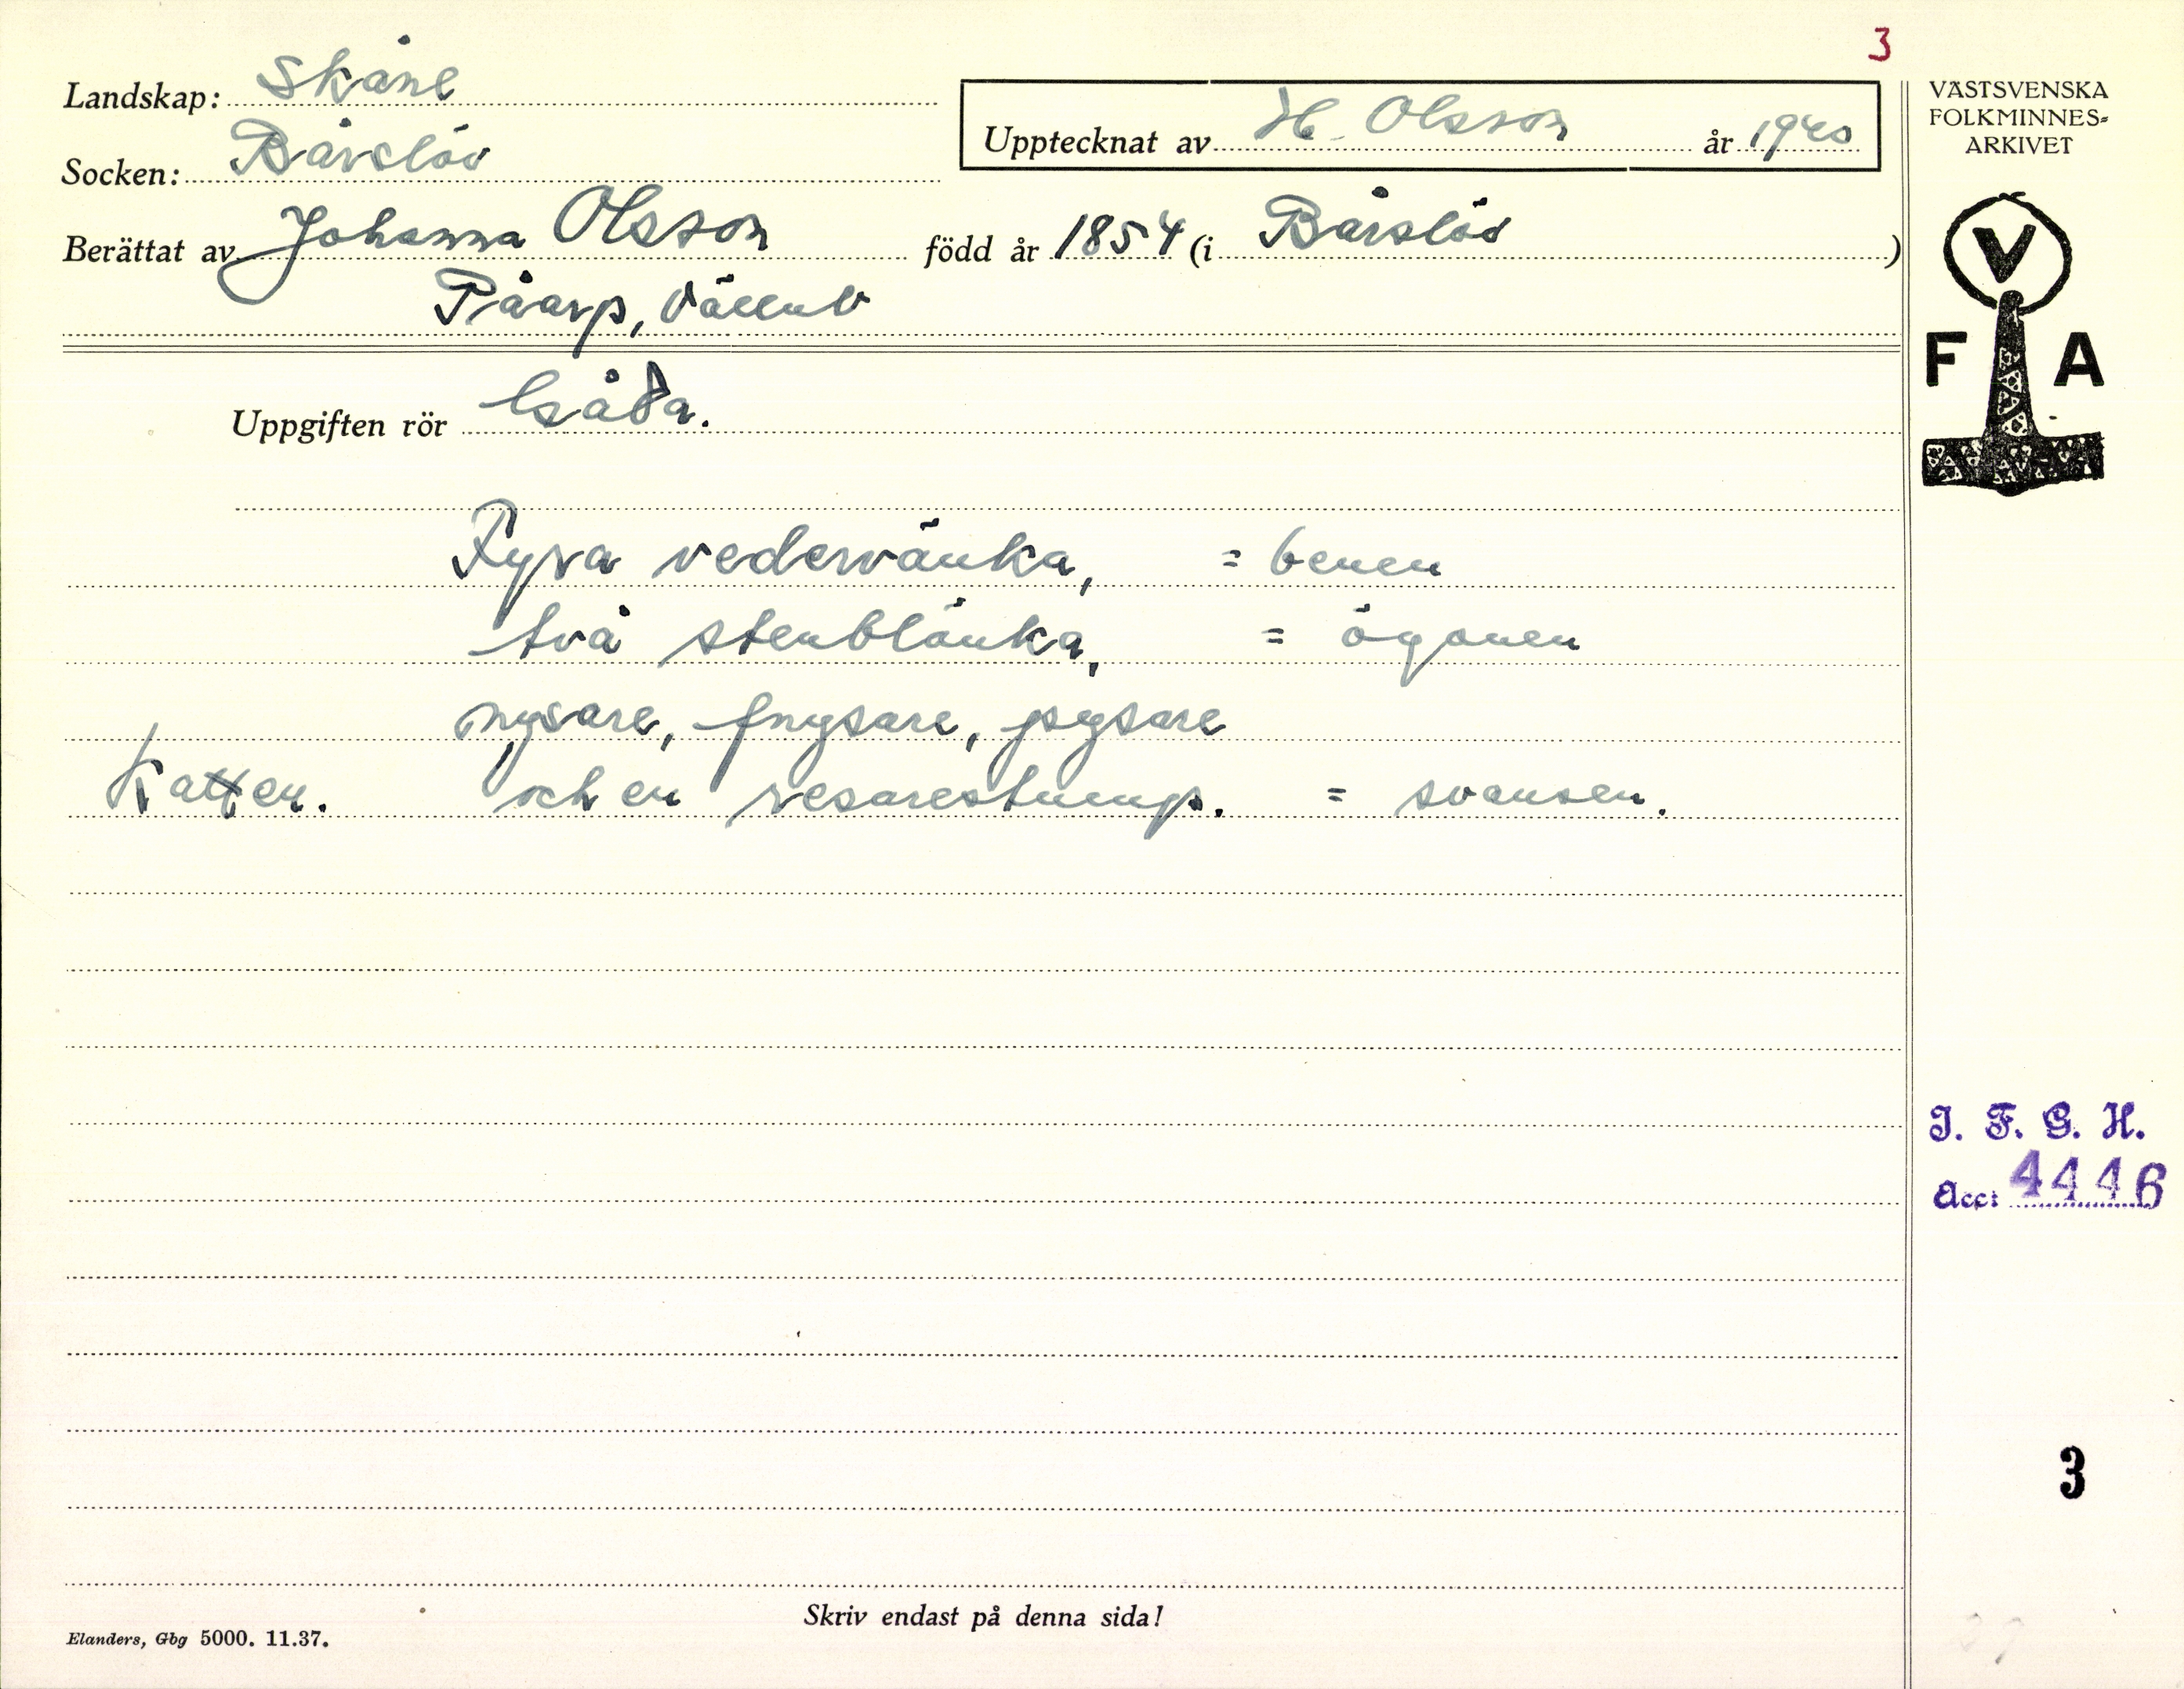 3
Landskap: Skåne
Socken: Bårslöv
Upptecknat av H. Olsson år 1940
Berättat av Johanna Olsson född år 1854 (i Bårslöv)
Påarp, Välluv
VÄSTSVENSKA
FOLKMINNES-
ARKIVET
V
F A
Uppgiften rör Gåta.
Fyra vedervänka, = benen
två stenblänka, = ögonen
nysare, fnysare, pysare
Katten. och en resarestump. = svansen.
I. F. G. H.
Acc: 4446
3
Skriv endast på denna sida!
Elanders, Gbg 5000. 11.37.